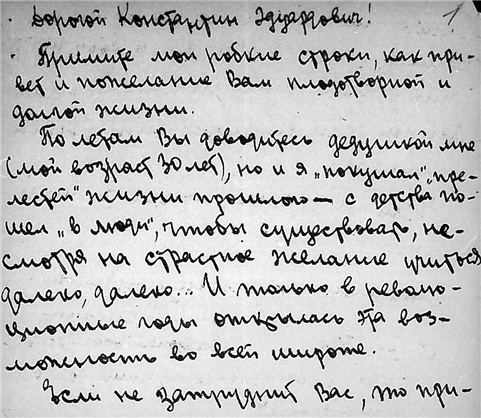 Дорогой Константин Эдуардович! 1
Примите мои робкие строки, как при-
вет и пожелание Вам плодотворной и
долгой жизни.
По летам Вы доводитесь дедушкой мне
(мой возраст 30 лет), но и я „покушал" „пре-
лестей" жизни прошлого — с детства по-
шел „в люди", чтобы существовать, не-
смотря на страстное желание учиться
далеко, далеко... И только в револю-
ционные годы открылась эта воз-
можность во всей широте.
Если не затруднит Вас, то при-